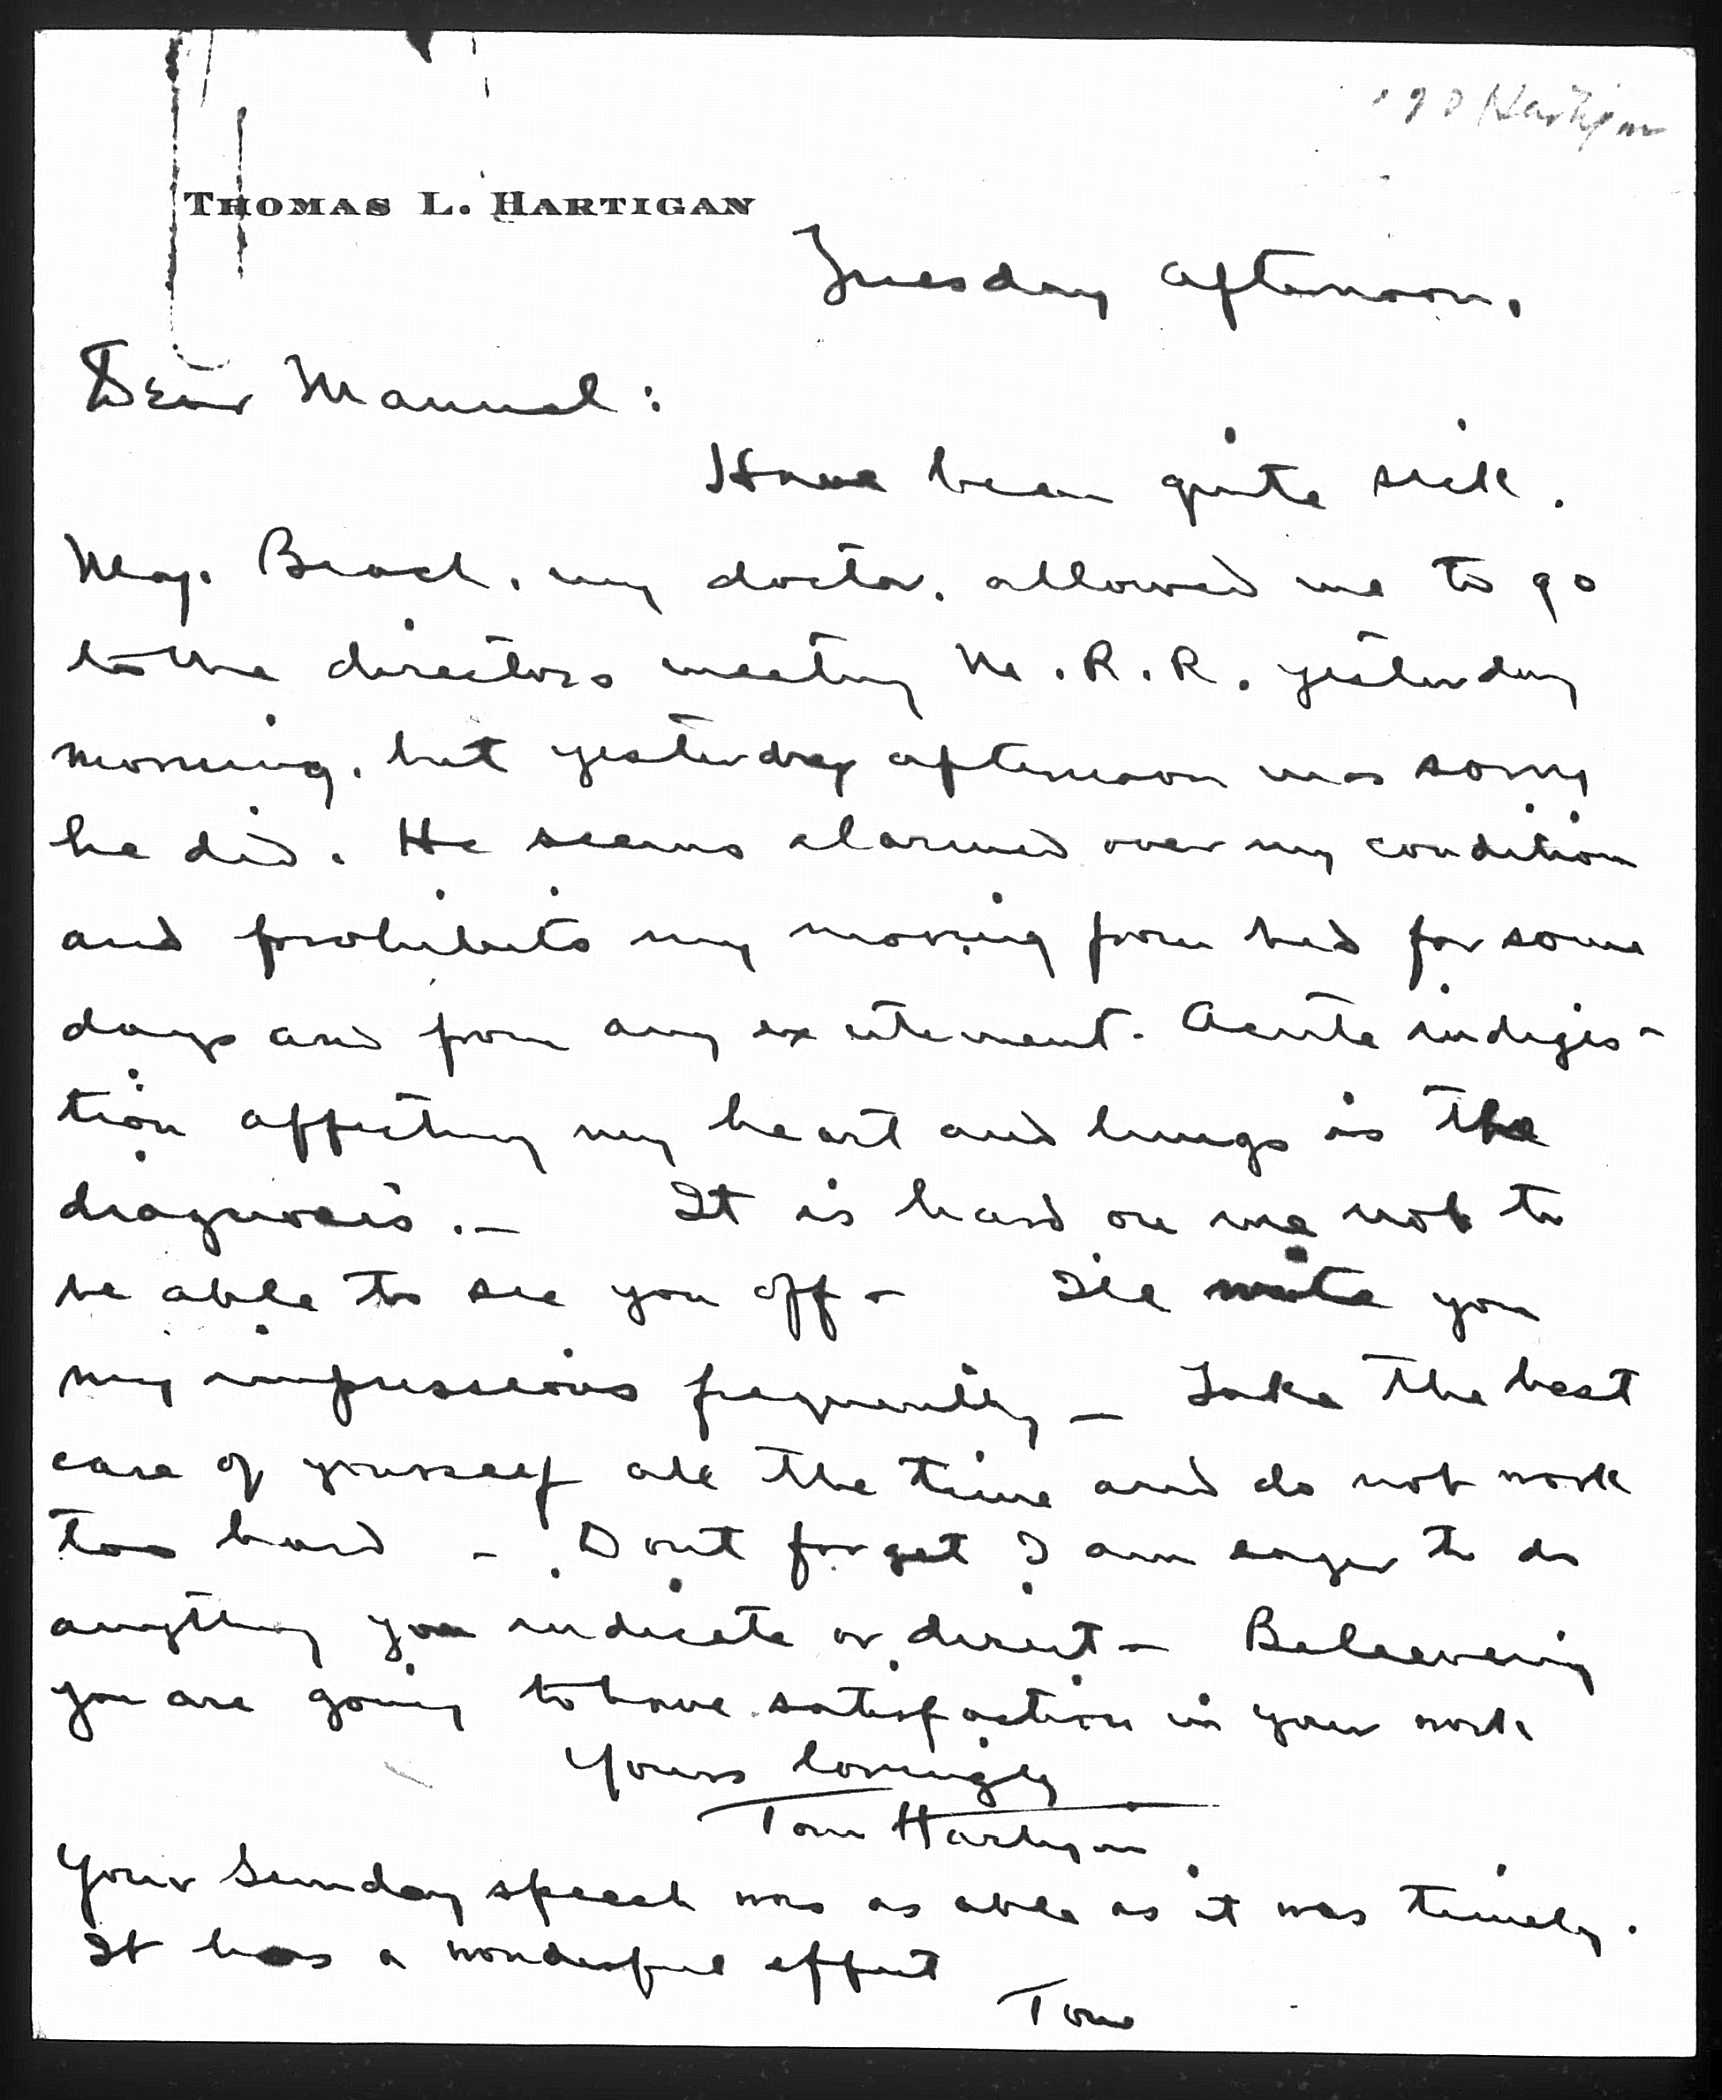 Hartigan
THOMAS L. HARTIGAN
Tuesday afternoon,
Dear Manuel:
Have been quite sick.
Maj. Beach, my doctor, allowed me to go
to the directors meeting M.R.R. yesterday
morning, but yesterday afternoon was sorry
he did. He seems alarmed over my condition
and prohibits my moving from bed for some
days and from any excitement. Acute indiges-
tion affecting my heart and lungs is the
diagnosis. — It is hard on me not to
be able to see you off — I'll write you
my impressions frequently — Take the best
care of yourself all the time and do not work
too hard — Dont forget I am eager to do
anything you indicate or direct — Believing
you are going to have satisfaction in your work
Yours lovingly
Tom Hartigan
Your Sunday speech was as able as it was timely.
It has a wonderful effect
Tom